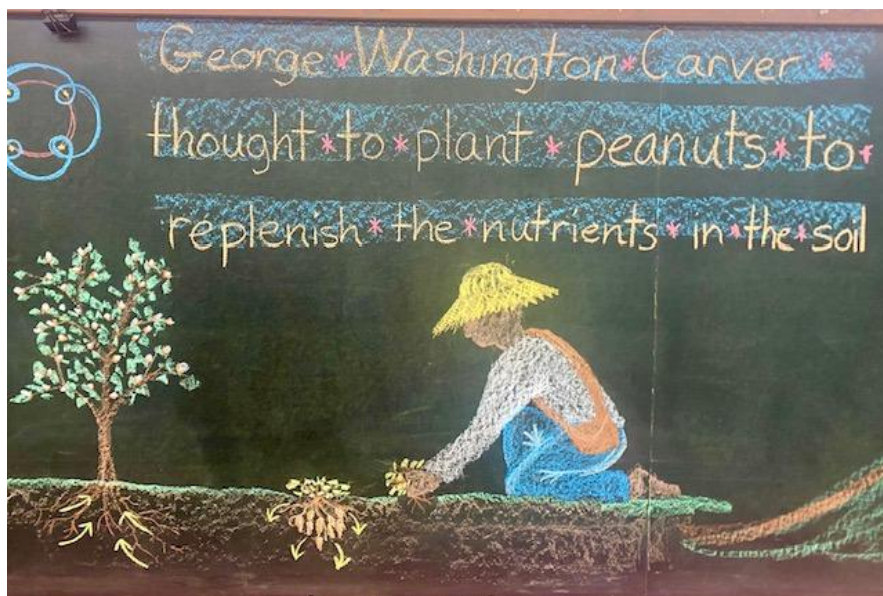 George * Washington * Carver *
thought * to * plant * peanuts * to *
replenish * the * nutrients * in * the * soil